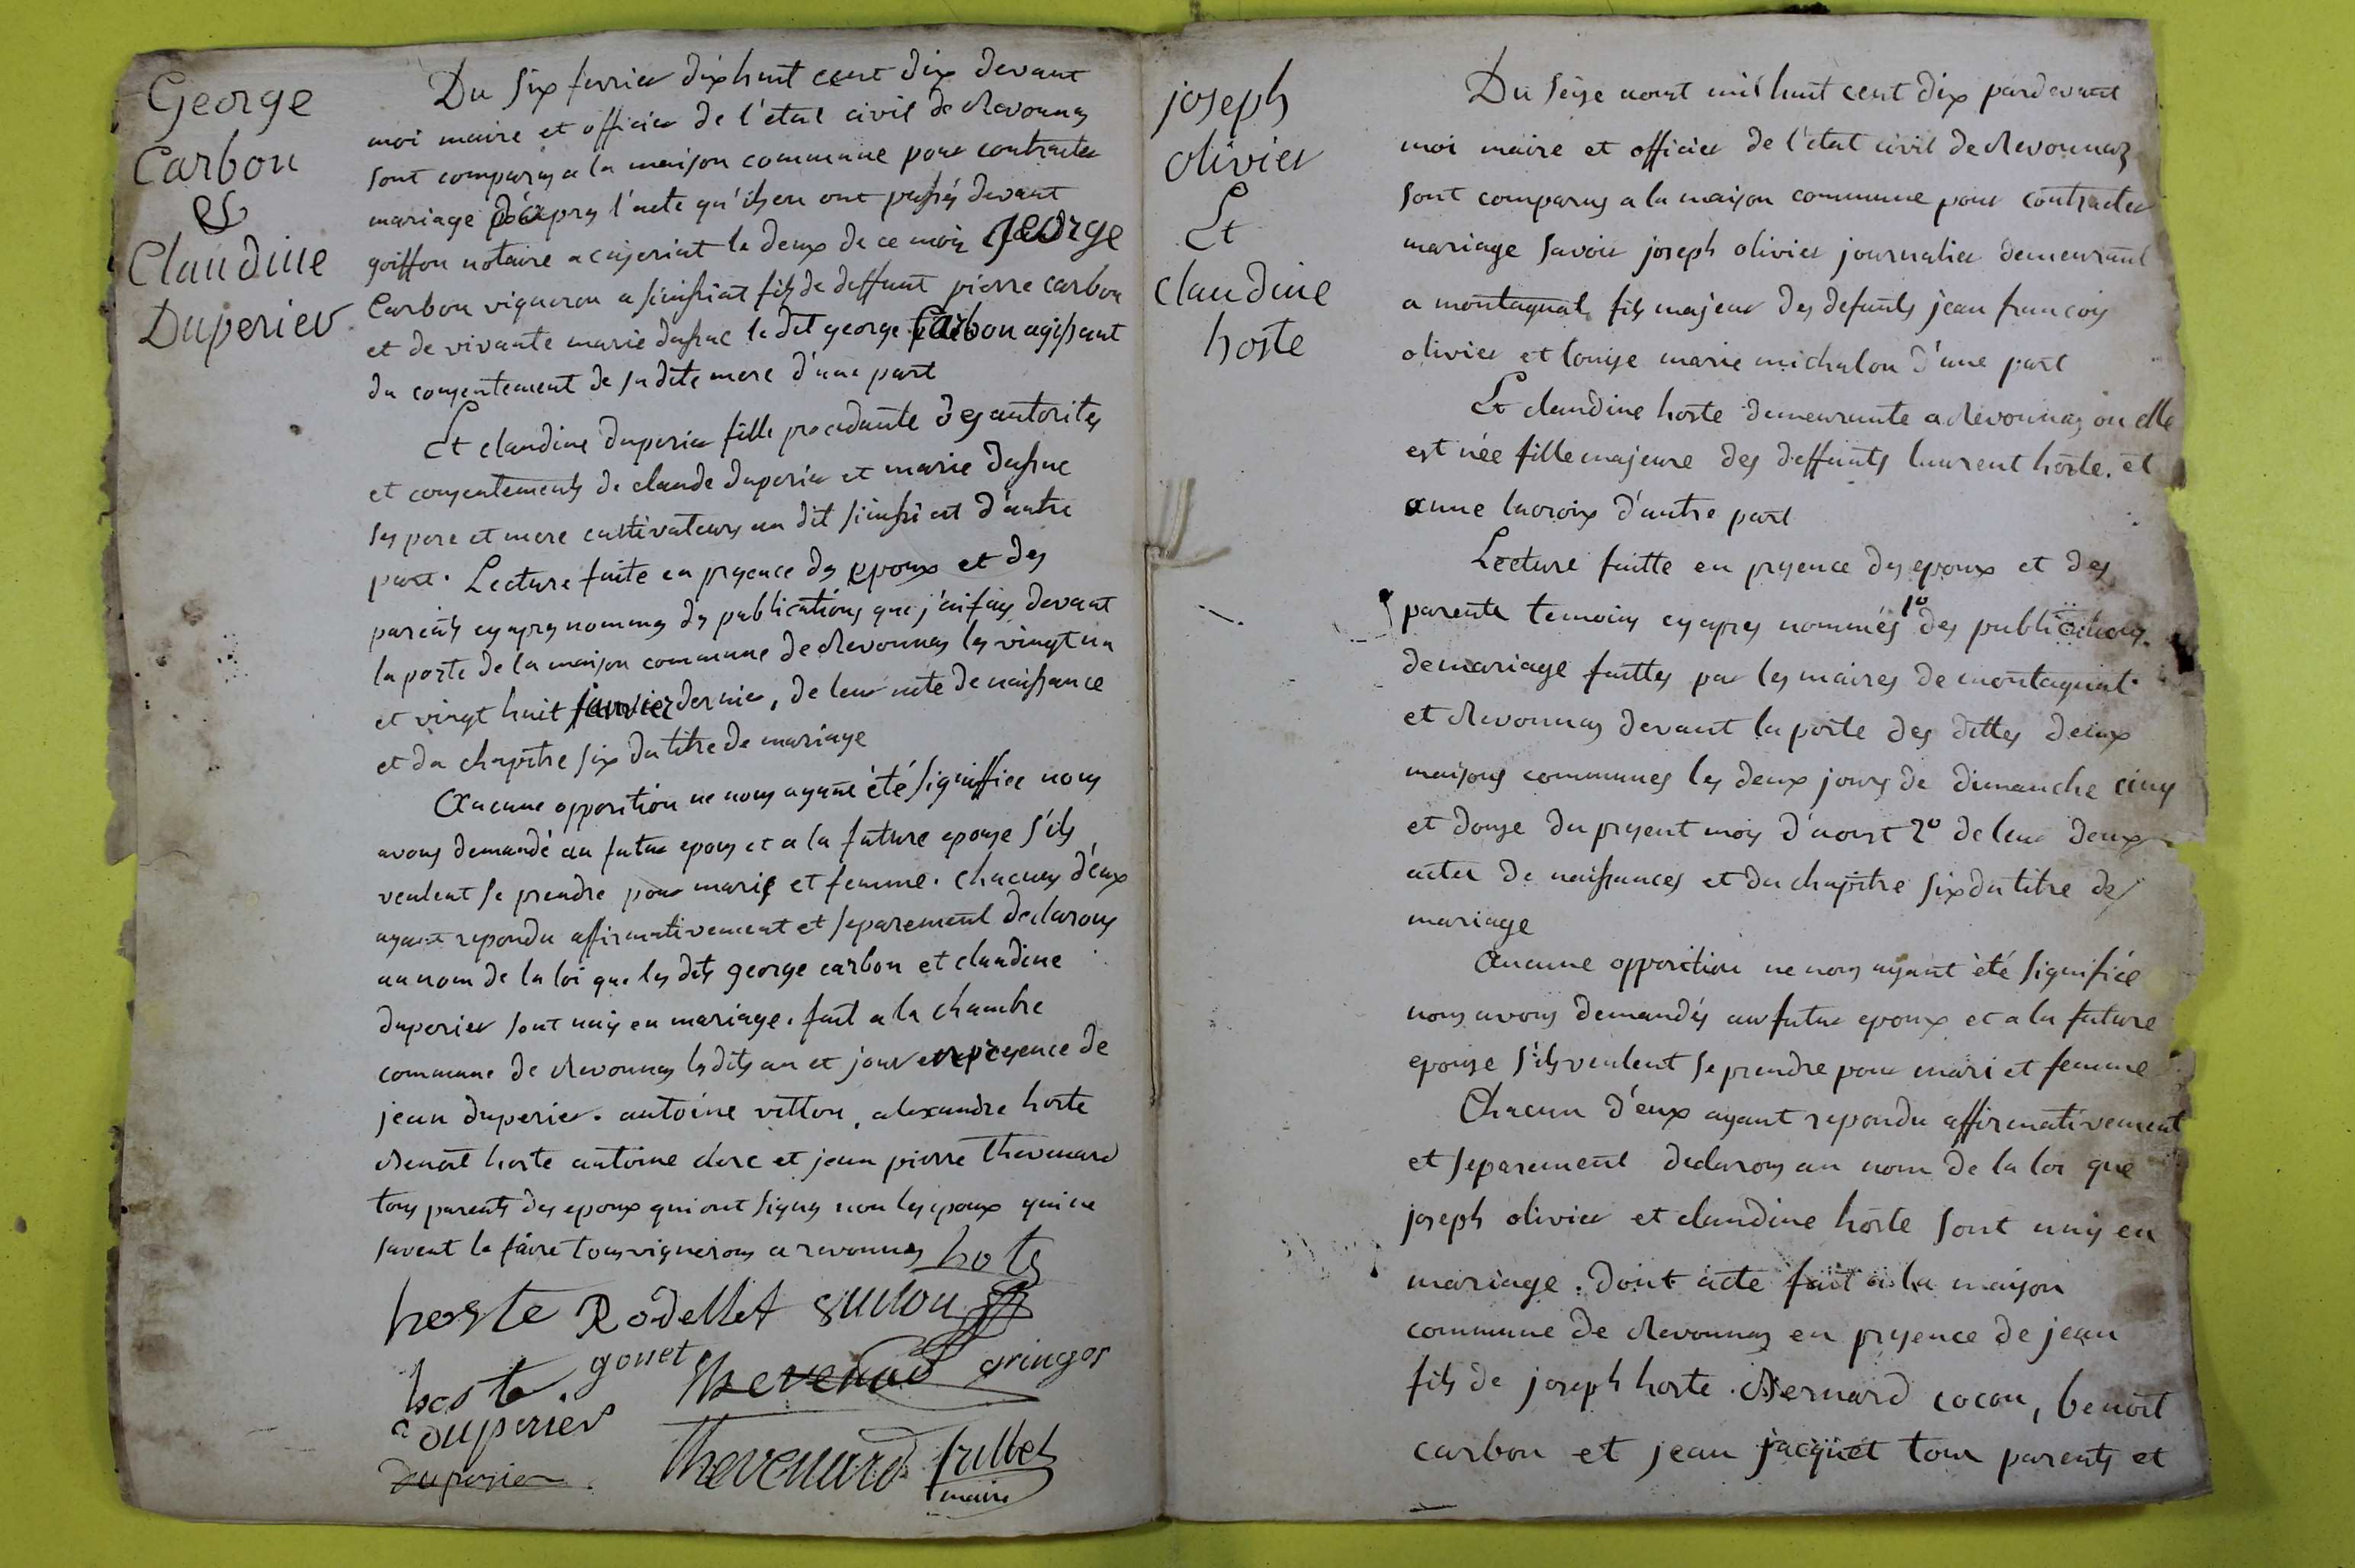 George
Carbon
&
Claudine
Duperier
Du six fevrier dix huit cent dix devant
moi maire et officier de l'état civil de Revonnas
sont comparus a la maison commune pour contracter
mariage d'apres l'acte qu'ils en ont passés devant
goiffon notaire a ceyseriat le deux de ce mois George
Carbon vigneron a feu deffunt pierre carbon
et de vivante marie dufrac le dit george Carbon agissant
du consentement de sa dite mere d'une part
Et claudine duperier fille procedante des autorités
et consentements de claude duperier et marie
ses pere et mere cultivateurs au dit d'autre
part. Lecture faite en presence des epoux et des
parents cy apres nommes des publications que j'ai fais devant
la porte de la maison commune de Revonnas les vingt un
et vingt huit janvier dernier, de leur acte de naissance
et du chapitre six du titre de mariage
Aucune opposition ne nous ayant été signiffiée nous
avons demandé au futur epous et a la future epouse s'ils
veulent se prendre pour maris et femme. chacuns d'eux
ayant repondu affirmativement et separement declarons
au nom de la loi que les dits george carbon et claudine
duperier sont unis en mariage. fait a la chambre
commune de Revonnas lesdits an et jour en presence de
jean duperier. antoine vitton, alexandre hoste
Benoit hoste antoine clerc et jean pierre Thevenard
tous parents des epoux qui ont signés non les epoux qui ne
savent le faire tous vignerons a revonnas hote
hoste Rodellet
hoste. gouet Thevenard gringos
Duperier
duperier Thevenard
maire
joseph
olivier
Et
claudine
hoste
Du seize aoust mil huit cent dix pardevant
moi maire et officier de l'etat civil de Revonnaz
sont comparus a la maison commune pour contracter
mariage savoir joseph olivier journalier demeurant
a montagnat fils majeur des defunts jean françois
olivier et louise marie michalon d'une part
Et claudine hoste demeurante a Revonnas ou elle
est née fille majeure des deffunts laurent hoste. et
anne lacroix d'autre part
Lecture faitte en presence des epoux et des
parents temoins cy apres nommés 1º des publications
de mariage faittes par les maires de montagnat
et Revonnas devant la porte des dittes deux
maisons communes les deux jours de dimanche cinq
et douze du present mois d'aoust 2º de leur deux
actes de naissances et du chapitre six du titre de
mariage
Aucune opposition ne nous ayant été signifiée
nous avons demandés au futur epoux et a la future
epouse s'ils veulent se prendre pour mari et femme
Chacun d'eux ayant repondu affirmativement
et separement declarons au nom de la loi que
joseph olivier et claudine hoste sont unis en
mariage. dont acte fait a la maison
commune de Revonnas en presence de jean
fils de joseph hoste. Bernard cocon, benoit
carbon et jean jacquet tous parents et